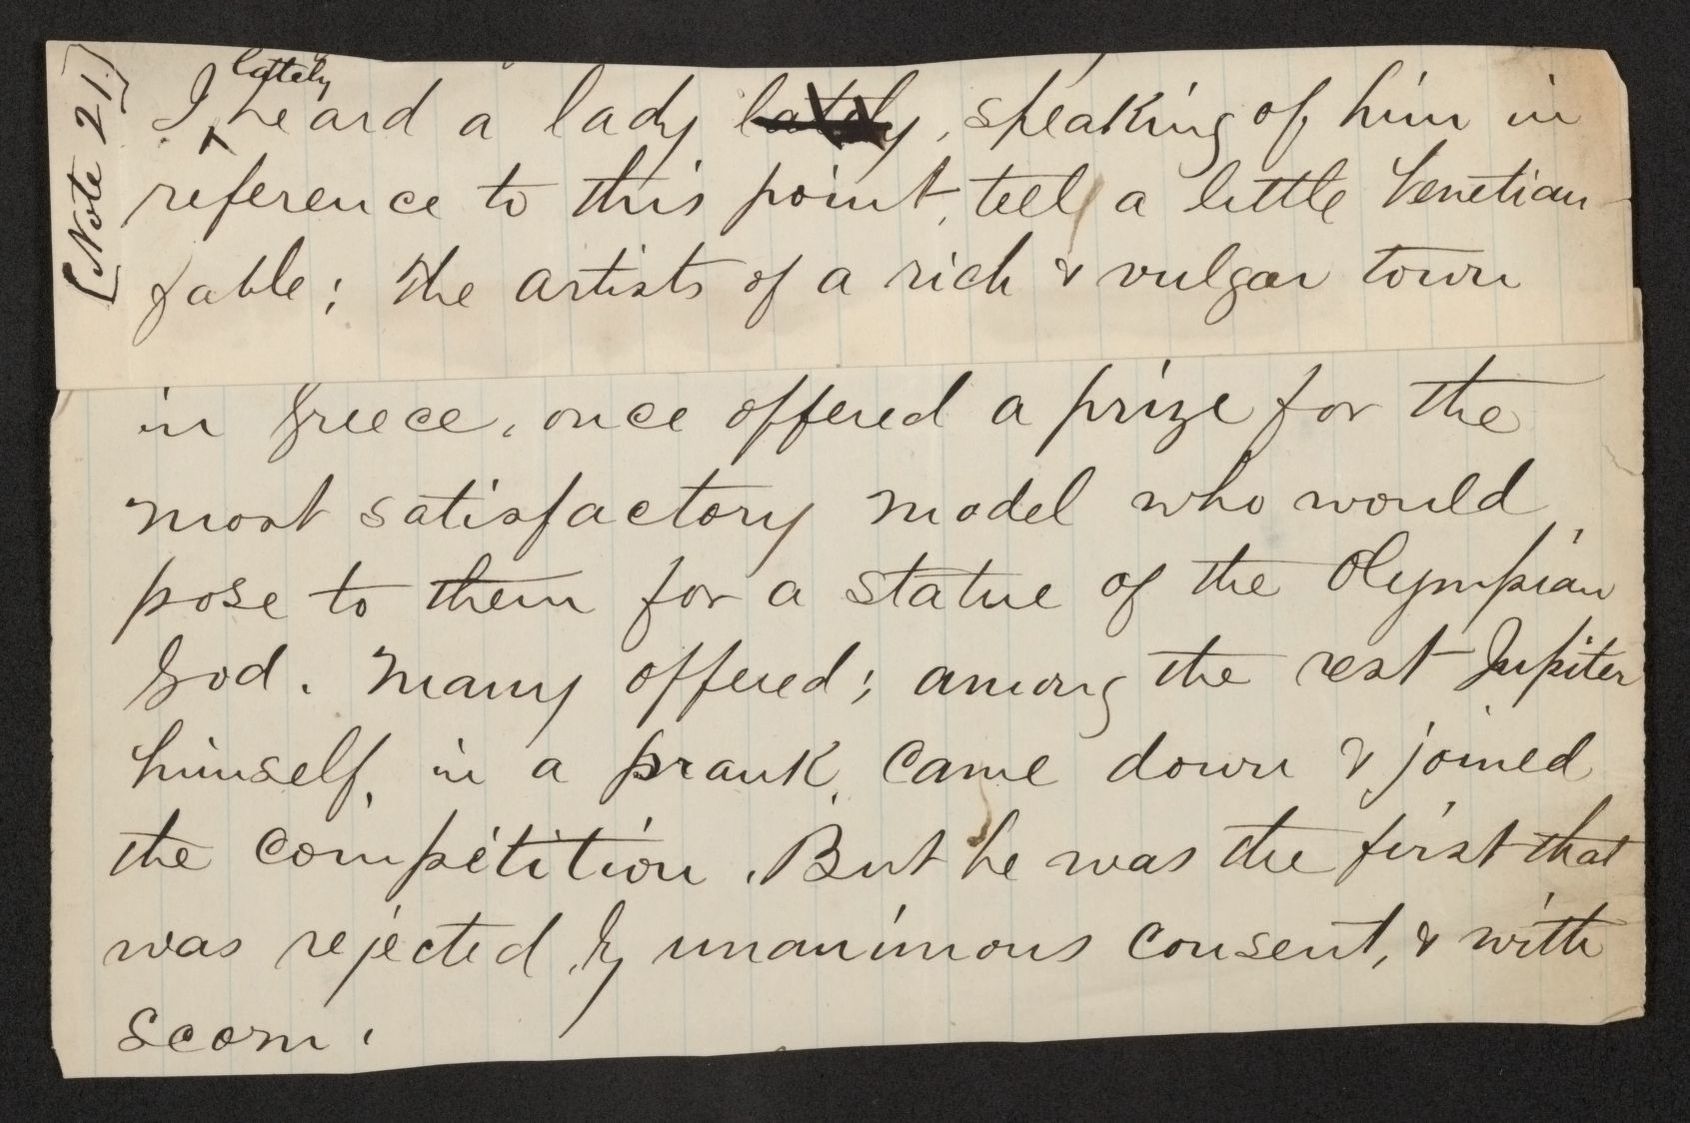 [Note 21.]
lately
I ^ heard a lady lately, speaking of him in
reference to this point, tell a little Venetian
fable; the artists of a rich & vulgar town
in Greece, once offered a prize for the
most satisfactory model who would
pose to them for a statue of the Olympian
God. Many offered; among the rest Jupiter
himself, in a prank, came down & joined
the competition. But he was the first that
was rejected by unanimous consent, & with
scorn.